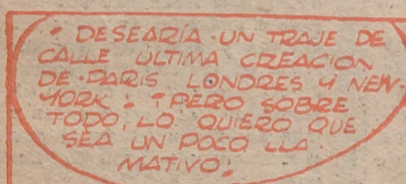 • DESEARÍA UN TRAJE DE
CALLE ULTIMA CREACION
DE PARIS LONDRES Y NEW-
YORK. ¡PERO SOBRE
TODO, LO QUIERO QUE
SEA UN POCO LLA-
MATIVO!